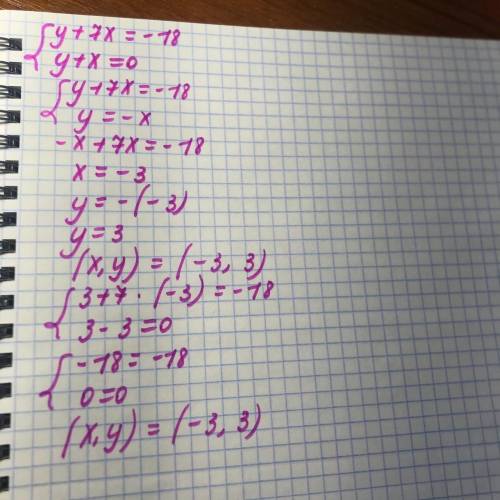 {y+7x=-18
y+x=0
{y+7x=-18
y=-x
-x+7x=-18
x=-3
y=-(-3)
y=3
(x,y)=(-3, 3)
{3+7·(-3)=-18
3-3=0
{-18=-18
0=0
(x,y)=(-3, 3)